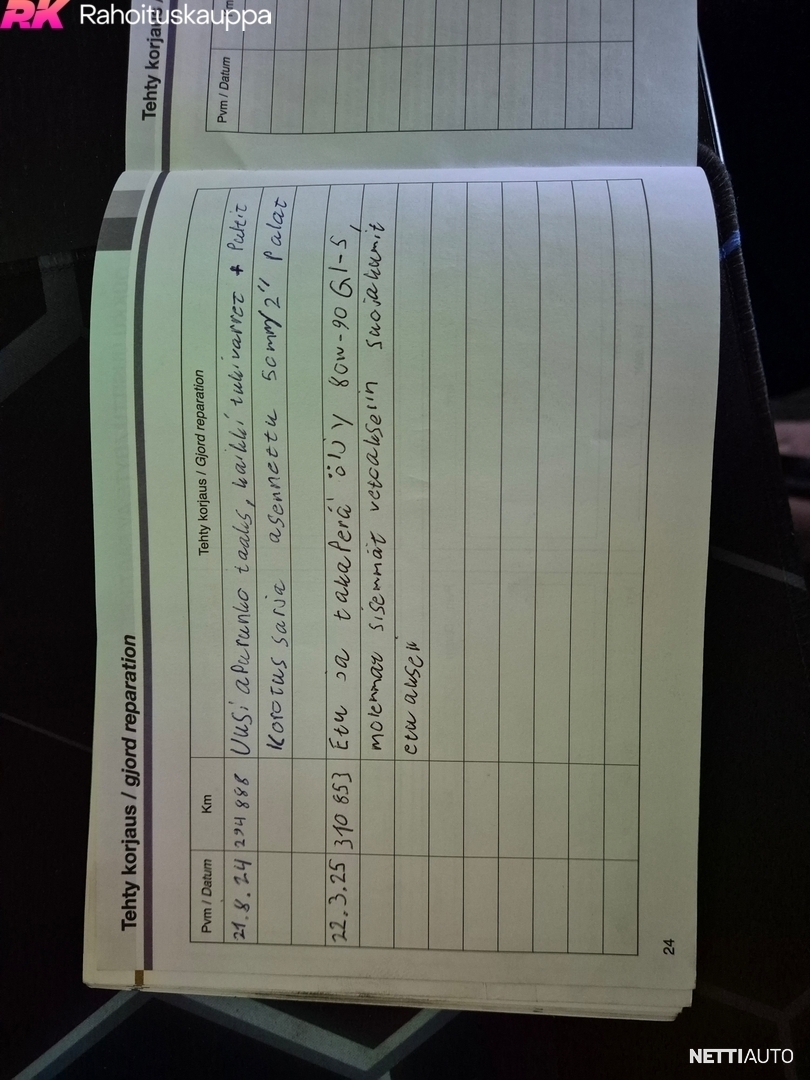 RK Rahoituskauppa
Tehty korjaus / gjord reparation
Pvm / Datum Km Tehty korjaus / Gjord reparation
21.8.24 294 888 Uusi apurunko taakse, kaikki tukivarret + Pultit
Korotus sarja asennettu 50mm/2" Palat
22.3.25 310 853 Etu ja takaperä öljy 80w-90 Gl-5,
molemmat sisemmät vetoakselin suojakumit
etu akseli
24
Pvm / Datum
NETTIAUTO